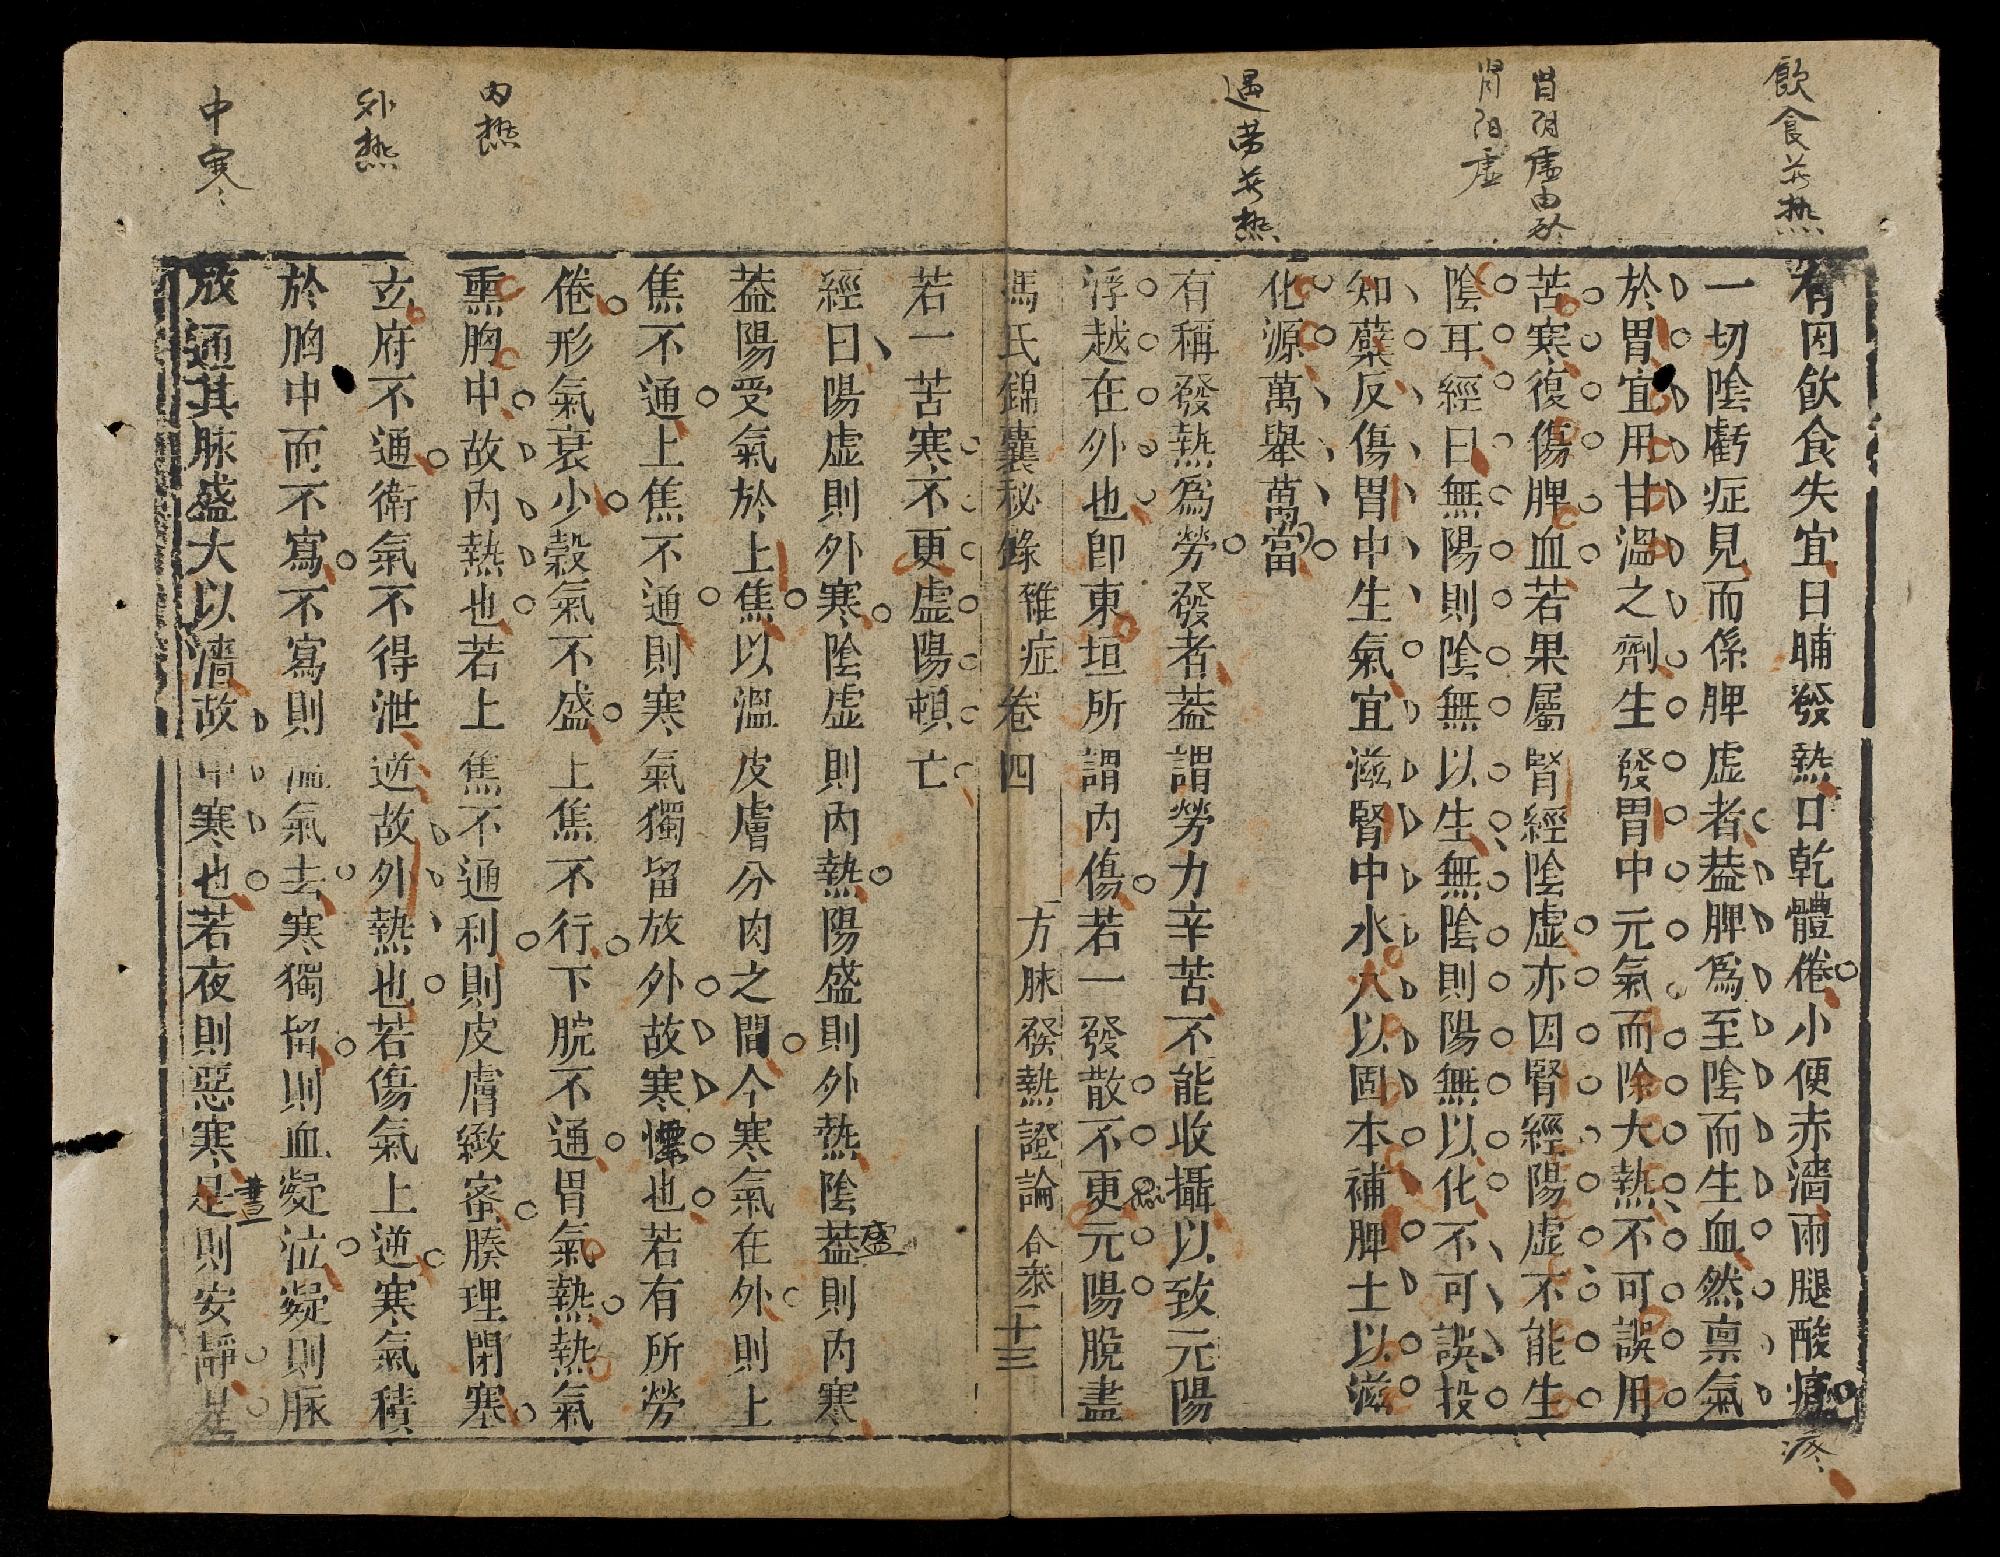 飲食発热
有因飲食失宜日晡發熱口乾體倦小便赤濇兩腿酸痛
疼
一切陰虧症見而係脾虛者葢脾爲至陰而生血然禀氣
於胃宜用甘溫之劑生發胃中元氣而除大熱不可誤用
肾阴虚
苦寒復傷脾血若果屬腎經陰虛亦因腎經陽虛不能生
肾阳虚
陰耳經曰無陽則陰無以生無陰則陽無以化不可誤投
知蘗反傷胃中生氣宜滋腎中水火以固本補脾土以滋
化源萬舉萬當
過劳発热
有稱發熱爲勞發者葢謂勞力辛苦不能收攝以致元陽
浮越在外也卽東垣所謂内傷若一發散不更元陽脫盡
馮氏錦囊秘錄 雜症 卷四 方脉發熱證論合叅 二十三
若一苦寒不更虛陽頓亡
經曰陽虛則外寒陰虛則内熱陽盛則外熱陰葢則内寒
盛
葢陽受氣於上焦以溫皮膚分肉之間今寒氣在外則上
焦不通上焦不通則寒氣獨留放外故寒慄也若有所勞
倦形氣衰少穀氣不盛上焦不行下脘不通胃氣熱熱氣
内热
熏胸中故内熱也若上焦不通利則皮膚緻密腠理閉塞
外热
玄府不通衛氣不得泄逆故外熱也若傷氣上逆寒氣積
於胸中而不寫不寫則溫氣去寒獨留則血凝泣凝則脉
中寒
放通其脉盛大以濇故中寒也若夜則惡寒是則安靜是
晝